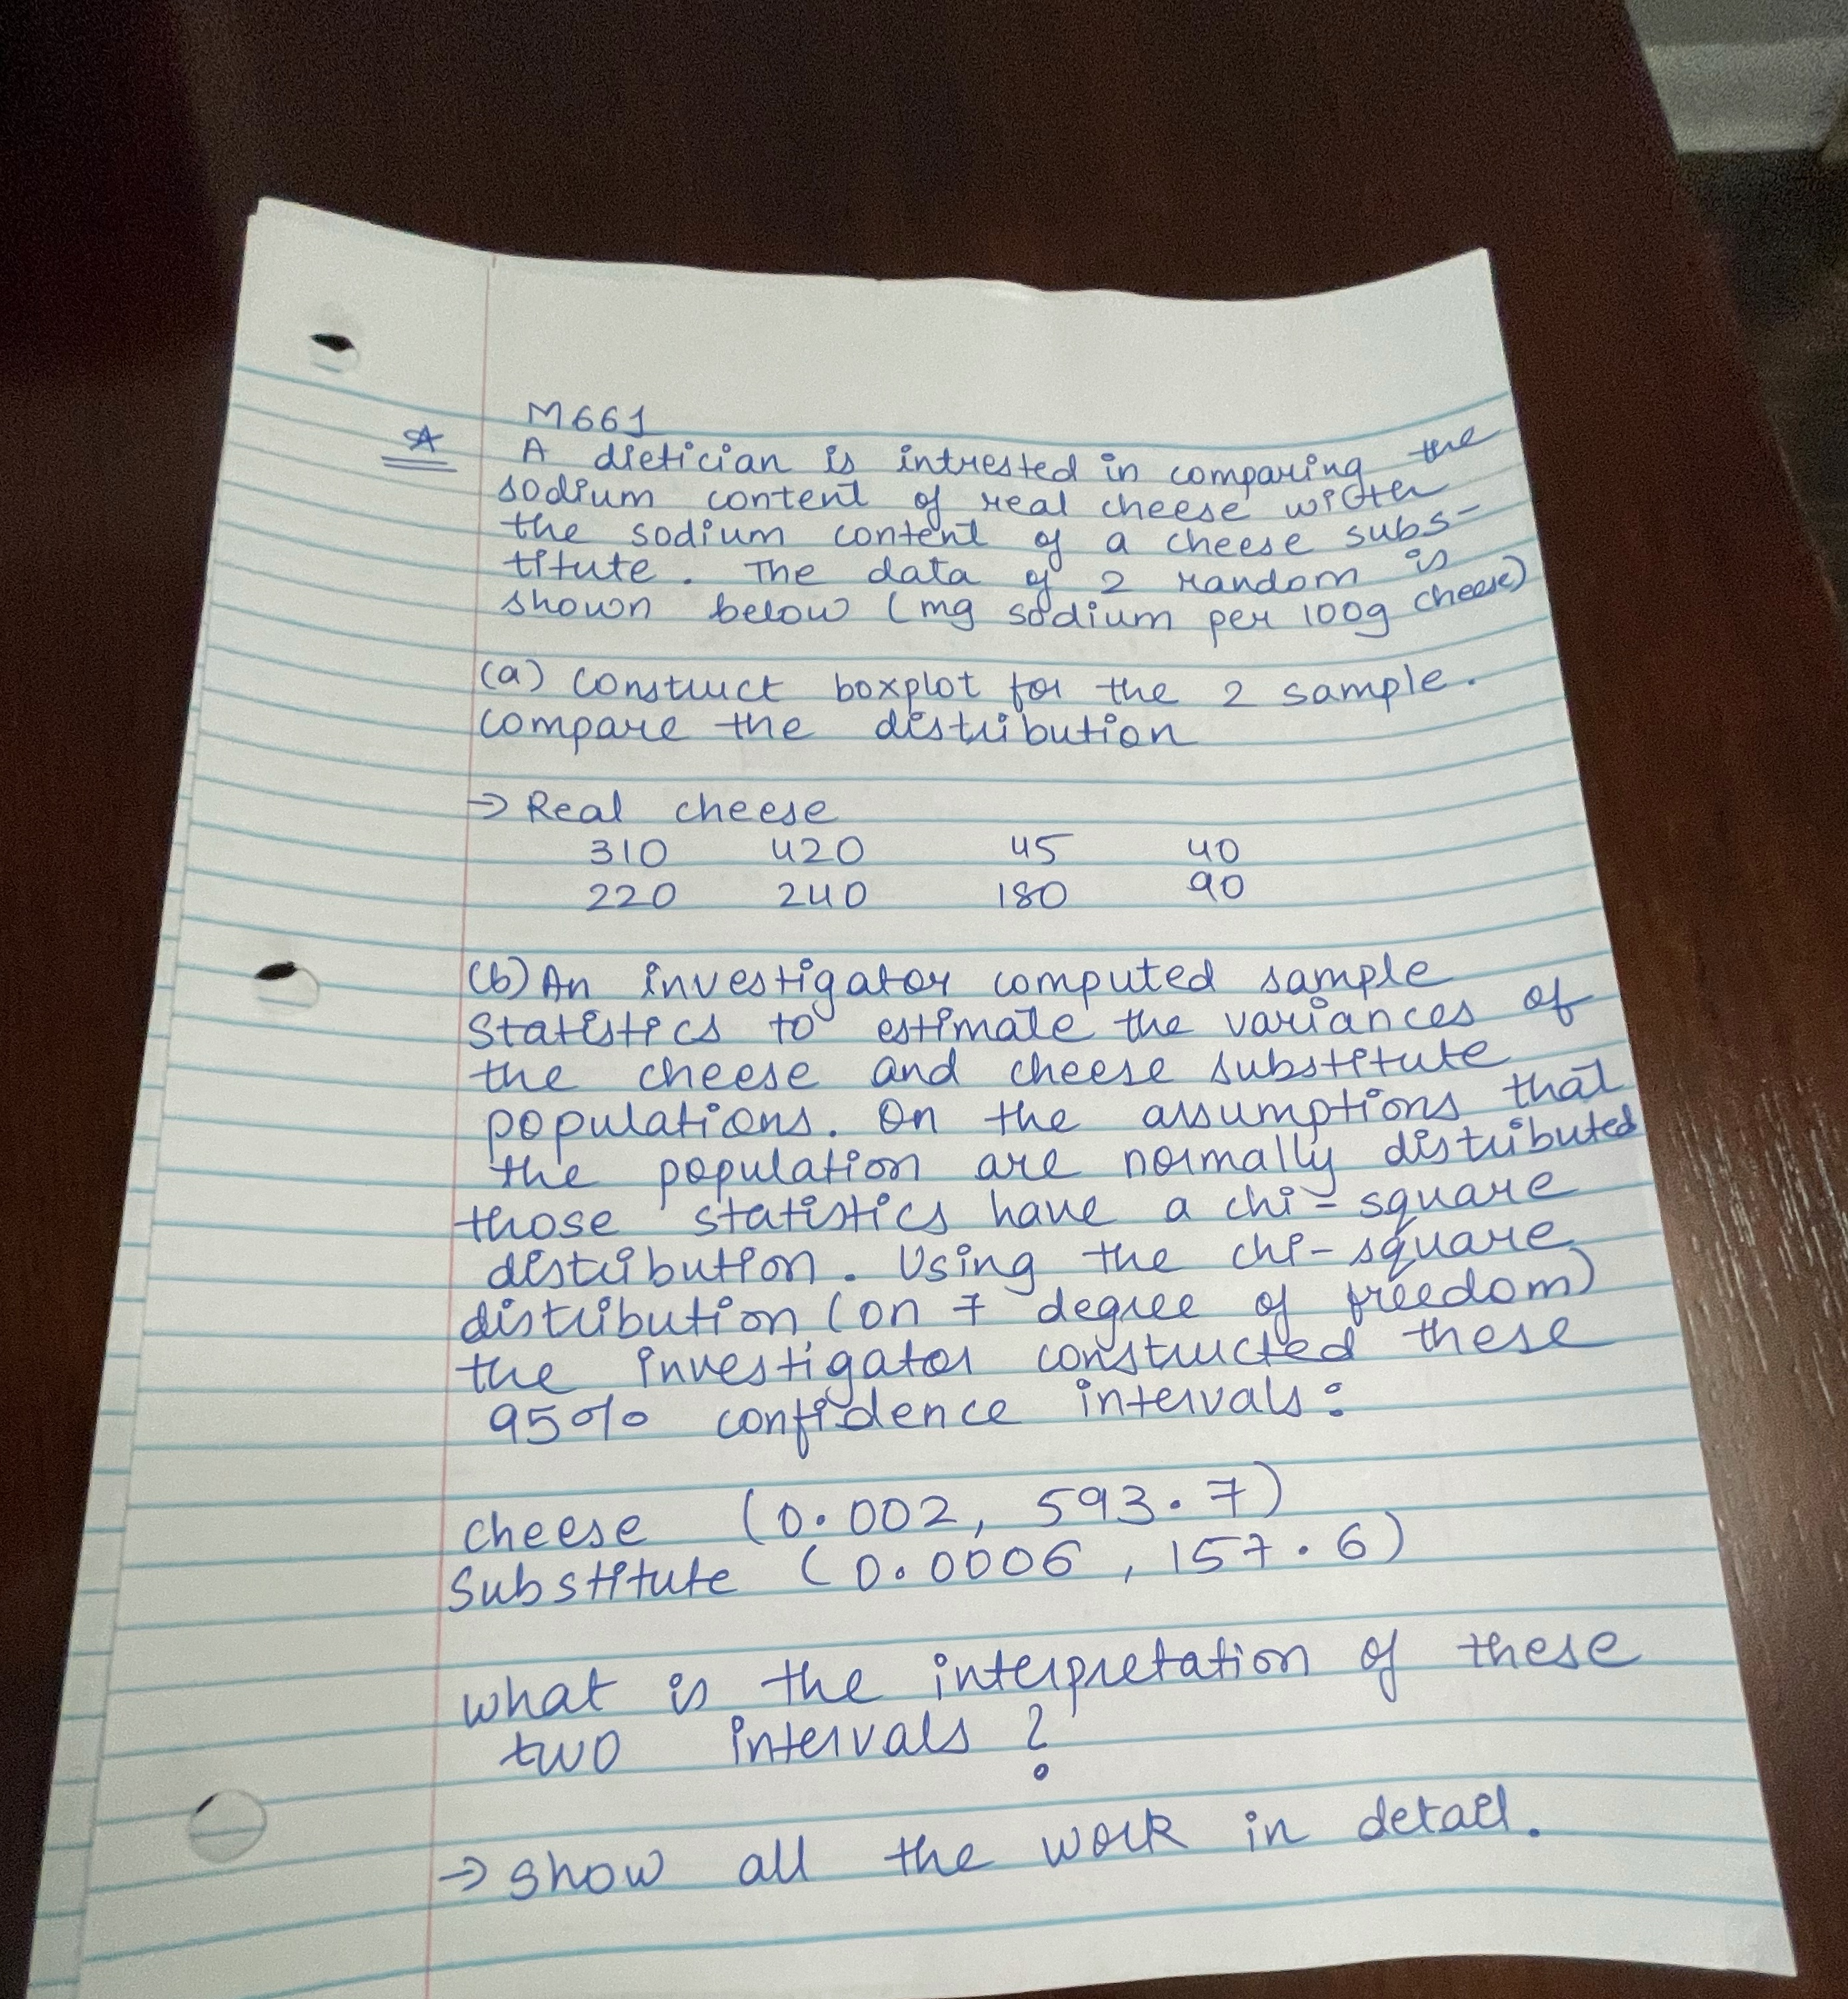 M661
A dietician is intrested in comparing the
sodium content of real cheese with
the sodium content of a cheese subs-
titute. The data of 2 random is
shown below (mg sodium per 100g cheese)
(a) Construct boxplot for the 2 sample.
compare the distribution
→ Real cheese
310 420 45 40
220 240 180 90
(b) An investigator computed sample
statistics to estimate the variances of
the cheese and cheese substitute
populations. On the assumptions that
the population are normally distributed
those statistics have a chi-square
distribution. Using the chi-square
distribution (on 7 degree of freedom)
the investigator constructed these
95% confidence intervals:
cheese (0.002, 593.7)
Substitute (0.0006, 157.6)
what is the interpretation of these
two intervals?
→ show all the work in detail.